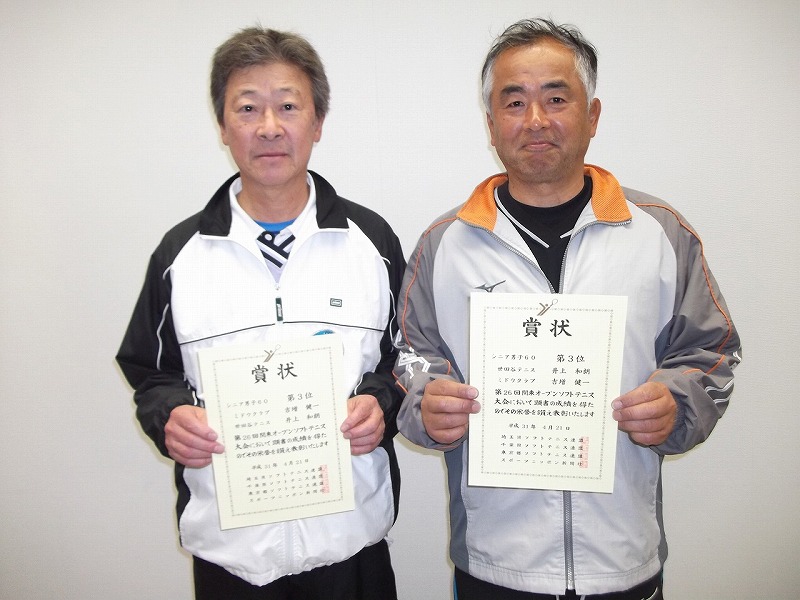 賞状
シニア男子60 第3位
ミドリクラブ 吉増 健一
世田谷テニス 井上 和朗
第26回関東オープンソフトテニス
大会において頭書の成績を得た
のでその栄誉を讃え表彰いたします
平成 31年 4月21日
埼玉県ソフトテニス連盟
千葉県ソフトテニス連盟
東京都ソフトテニス連盟
スポーツニッポン新聞社
賞状
シニア男子60 第3位
世田谷テニス 井上 和朗
ミドリクラブ 吉増 健一
第26回関東オープンソフトテニス
大会において頭書の成績を得た
のでその栄誉を讃え表彰いたします
平成 31年 4月21日
埼玉県ソフトテニス連盟
千葉県ソフトテニス連盟
東京都ソフトテニス連盟
スポーツニッポン新聞社